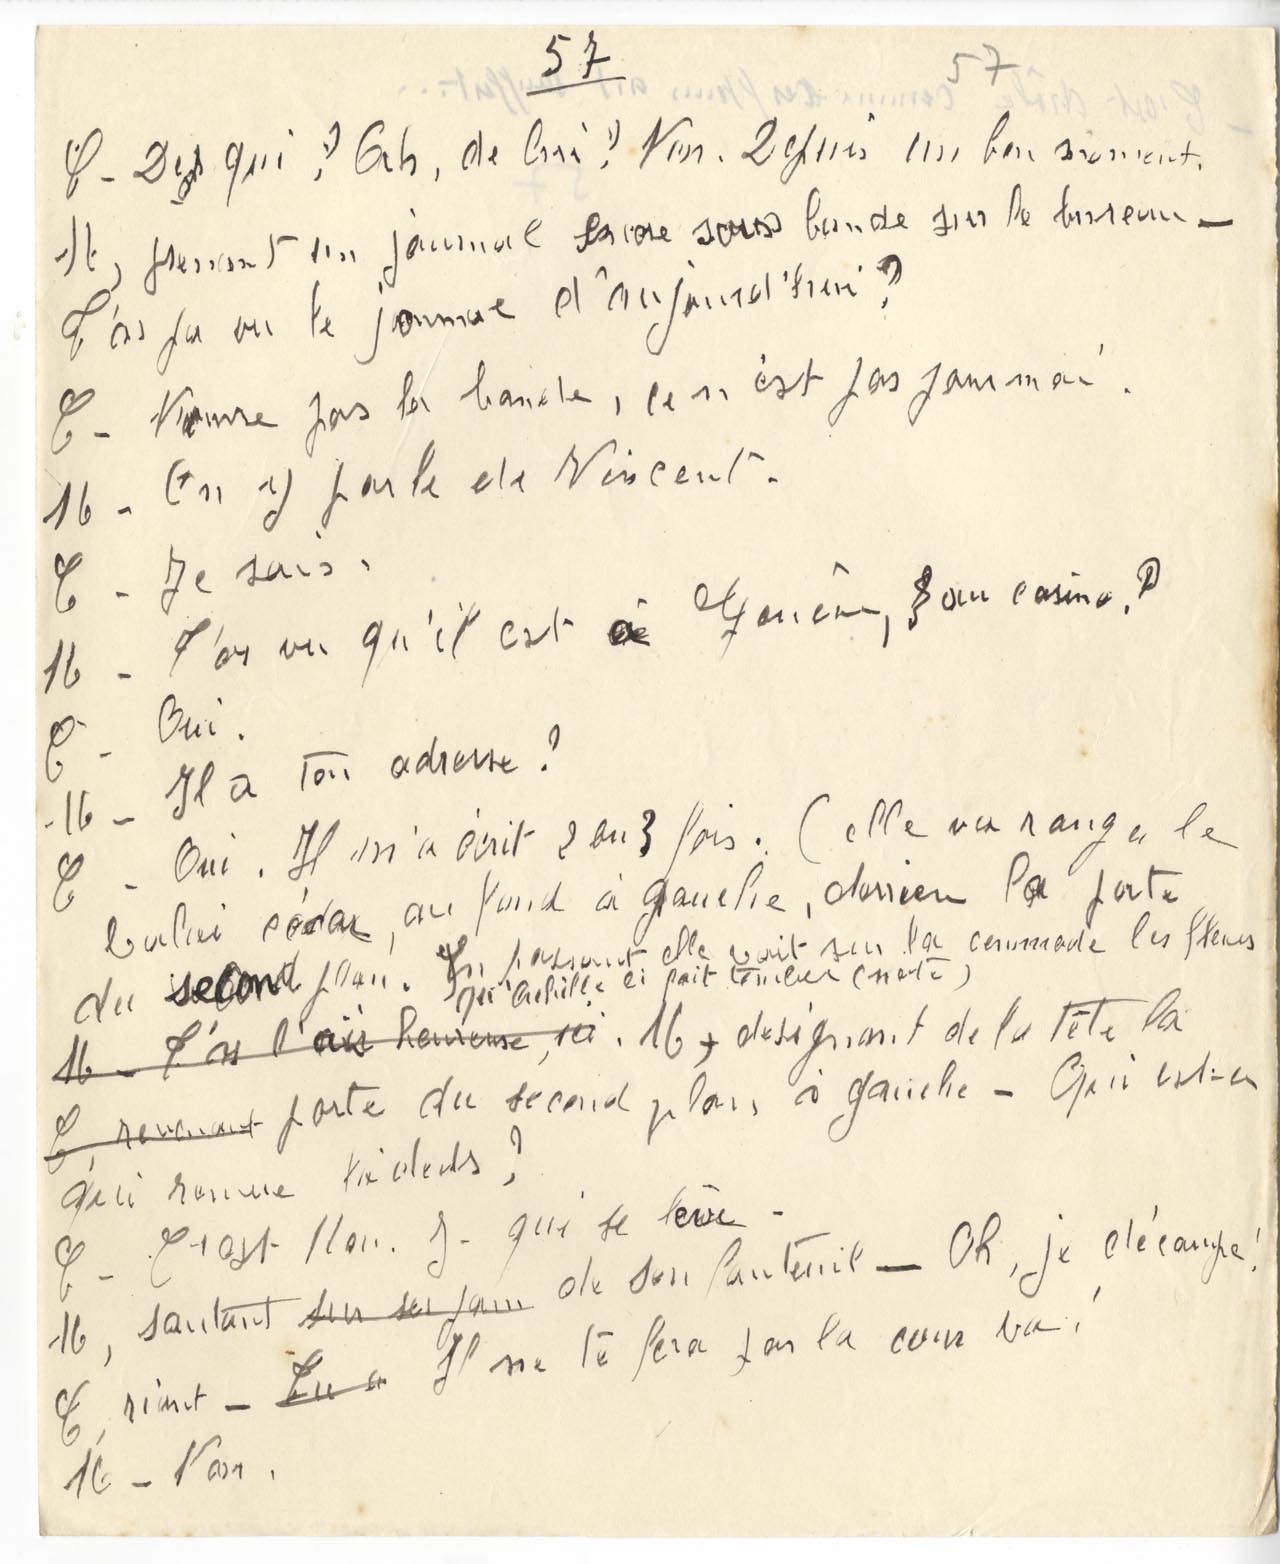 57 57
C - De qui? Ah, de lui? Non. Depuis un bon moment.
H, prenant un journal encore sous bande sur le bureau -
T'as pa vu le journal d'aujourd'hui?
C - N'ouvre pas la bande, ce n'est pas pour moi.
H - On y parle de Vincent.
C - Je sais.
H - T'as vu qu'il est à, au casino?
C - Oui.
H - Il a ton adresse?
C - Oui. Il m'a écrit 2 ou 3 fois. (elle va ranger le
balai, au fond à gauche, derrière la porte
du second plan. En passant elle voit sur la commode les fleurs
qu'Achille a fait tomber)
H - T'as l'air heureuse, ici. H, désignant de la tête la
C, revenant porte du second plan, à gauche - Qui est-ce
qui remue là-dedans?
C - C'est Mon. J. qui se lève -
H, sautant sur ses de son fauteuil - Oh, je décampe!
C, riant - Tu a Il ne te fera pas la cour va!
H - Non.